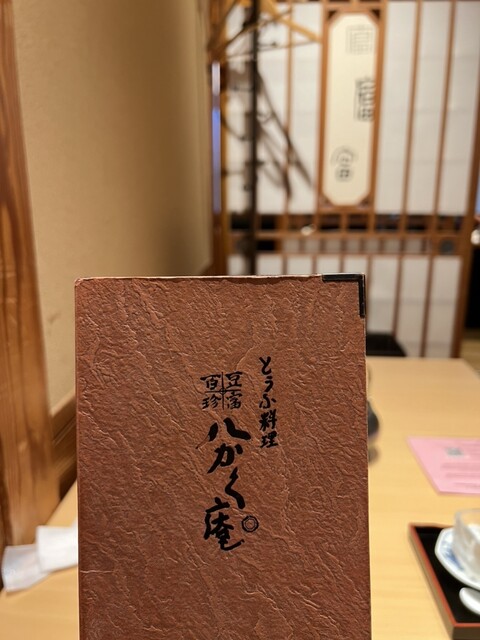 とうふ料理
豆富
百珍
八かく庵